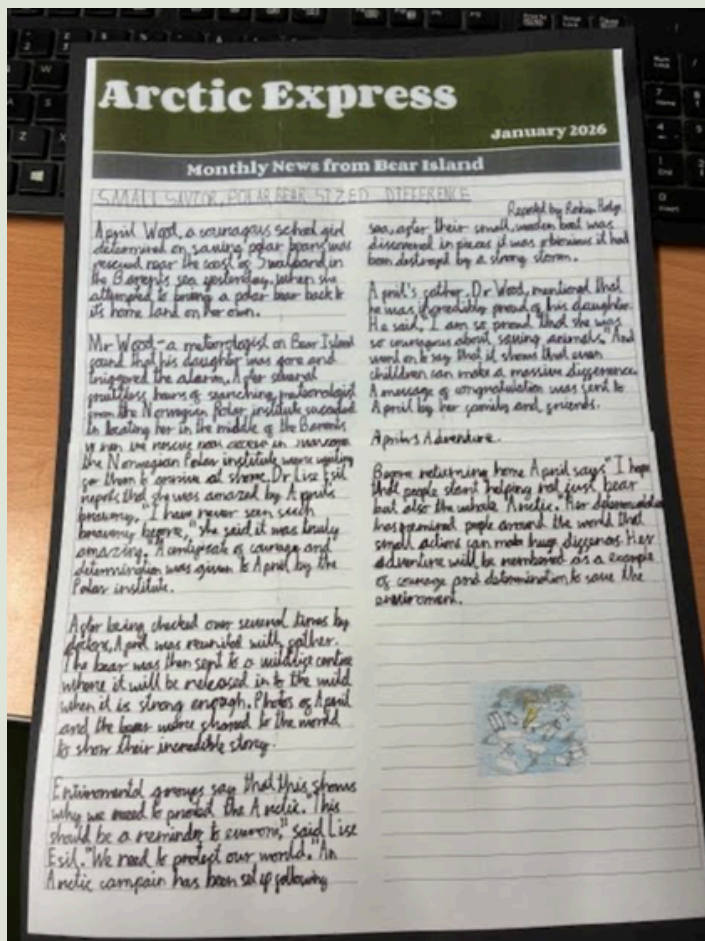 Arctic Express
January 2026
Monthly News from Bear Island
SMALL SAVIOR, POLAR BEAR SIZED DIFFERENCE
Reported by Robin
April Wood, a couragous school girl
determined on saving polar bears was
rescued near the coast of Svalbard in
the Barents sea yesterday, when she
attempted to bring a polar bear back to
its home land on her own.
Mr Wood-a meteorologist on Bear Island
found that his daughter was gone and
triggered the alarm. After several
fruitless hours of searching, meteorologist
from the Norwegian Polar institute
in locating her in the middle of the Barents
the Norwegian Polar institute were waiting
for them to arrive at shore. Dr Lise Esil
reports that she was amazed by Aprils
bravery. "I have never seen such
bravery before," she said it was truly
amazing. A certificate of courage and
determination was given to April by the
Polar institute.
After being checked over several times by
doctors, April was reunited with father.
The bear was then sent to a wildlife centre
where it will be released in to the wild
when it is strong enough. Photos of April
and the bear were shared to the world
to show their incredible story.
Enviromental groups say that this shows
why we need to protect the Arctic. "This
should be a reminder to everyone," said Lise
Esil. "We need to protect our world." An
Arctic campain has been set up following
sea, after their small, wooden boat was
discovered in pieces it was it had
been destroyed by a strong storm.
April's father, Dr Wood, mentioned that
he was incredibly proud of his daughter.
He said, "I am so proud that she was
so courageous about saving animals." And
went on to say that it shows that even
children can make a massive difference.
A message of congratulation was sent to
April by her family and friends.
Aprils Adventure.
Before returning home April says "I hope
that people start helping not just bear
but also the whole Arctic. Her
has people around the world that
small actions can make huge Her
adventure will be as a example
of courage and determination to save the
enviroment.